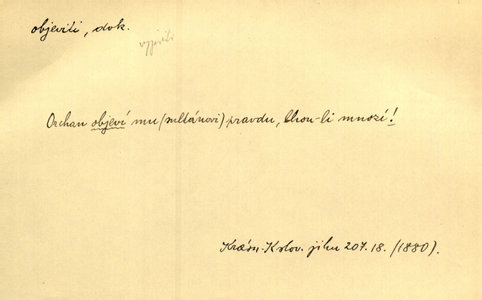 objeviti, dok.
vyjeviti
Orchan objeví mu (sultánovi) pravdu, lhou-li mnozí!
Krásn. Kr. slov. jihu 207. 18. (1880).